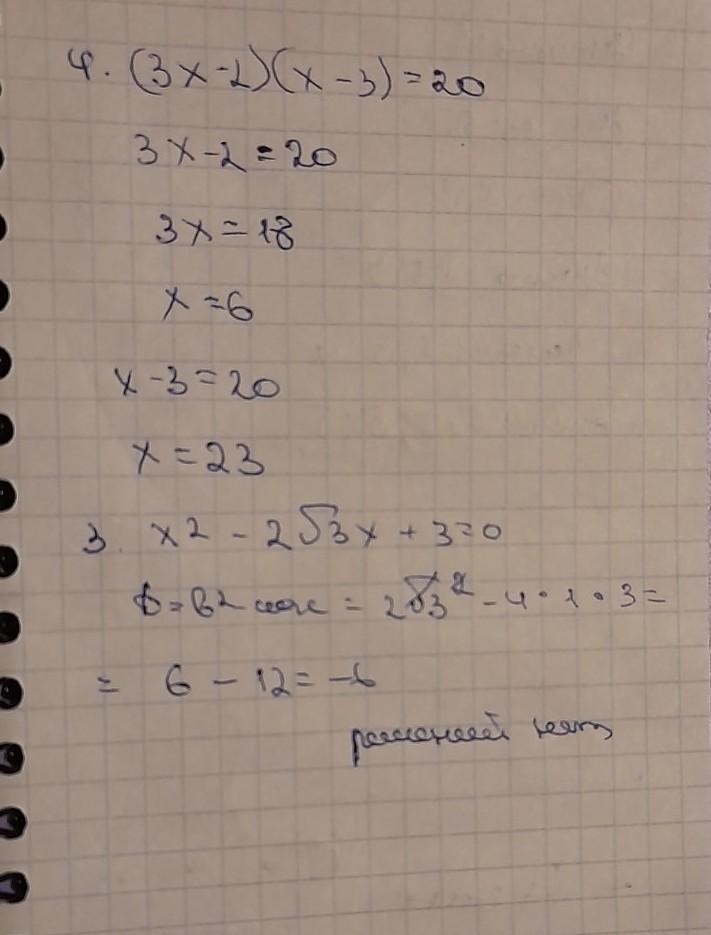 4. (3x-2)(x-3)=20
3x-2=20
3x=18
x=6
x-3=20
x=23
3. x² - 2√3x + 3=0
D=b²-4ac = 2√3² - 4·1·3=
= 6 - 12 = -6
решений нет